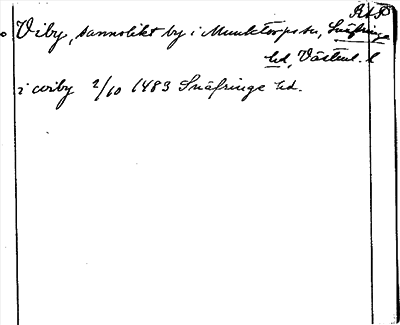 Viby, sannolikt by i Munktorps sn, Snäfringe
hd, Västml. l
i wiby 2/10 1483 Snäfringe hd.